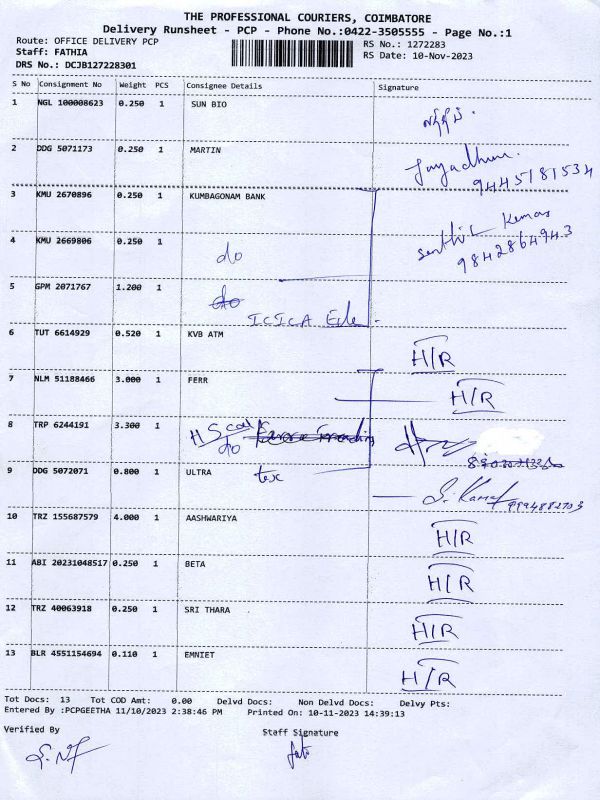 THE PROFESSIONAL COURIERS, COIMBATORE
Delivery Runsheet - PCP - Phone No.:0422-3505555 - Page No.:1
Route: OFFICE DELIVERY PCP RS No.: 1272283
Staff: FATHIA RS Date: 10-Nov-2023
DRS No.: DCJB127228301
S No Consignment No Weight PCS Consignee Details Signature
1 NGL 100008623 0.250 1 SUN BIO
2 DDG 5071173 0.250 1 MARTIN
9445181534
3 KMU 2670896 0.250 1 KUMBAGONAM BANK
Senthil Kumar
9842864943
4 KMU 2669806 0.250 1 do
5 GPM 2071767 1.200 1 do
6 TUT 6614929 0.520 1 KVB ATM H/R
7 NLM 51188466 3.000 1 FERR H/R
8 TRP 6244191 3.300 1 do
9 DDG 5072071 0.800 1 ULTRA tex
S. Kamal 9994882703
10 TRZ 155687579 4.000 1 AASHWARIYA H/R
11 ABI 20231048517 0.250 1 BETA H/R
12 TRZ 40063918 0.250 1 SRI THARA H/R
13 BLR 4551154694 0.110 1 EMNIET H/R
Tot Docs: 13 Tot COD Amt: 0.00 Delvd Docs: Non Delvd Docs: Delvy Pts:
Entered By :PCPGEETHA 11/10/2023 2:38:46 PM Printed On: 10-11-2023 14:39:13
Verified By Staff Signature